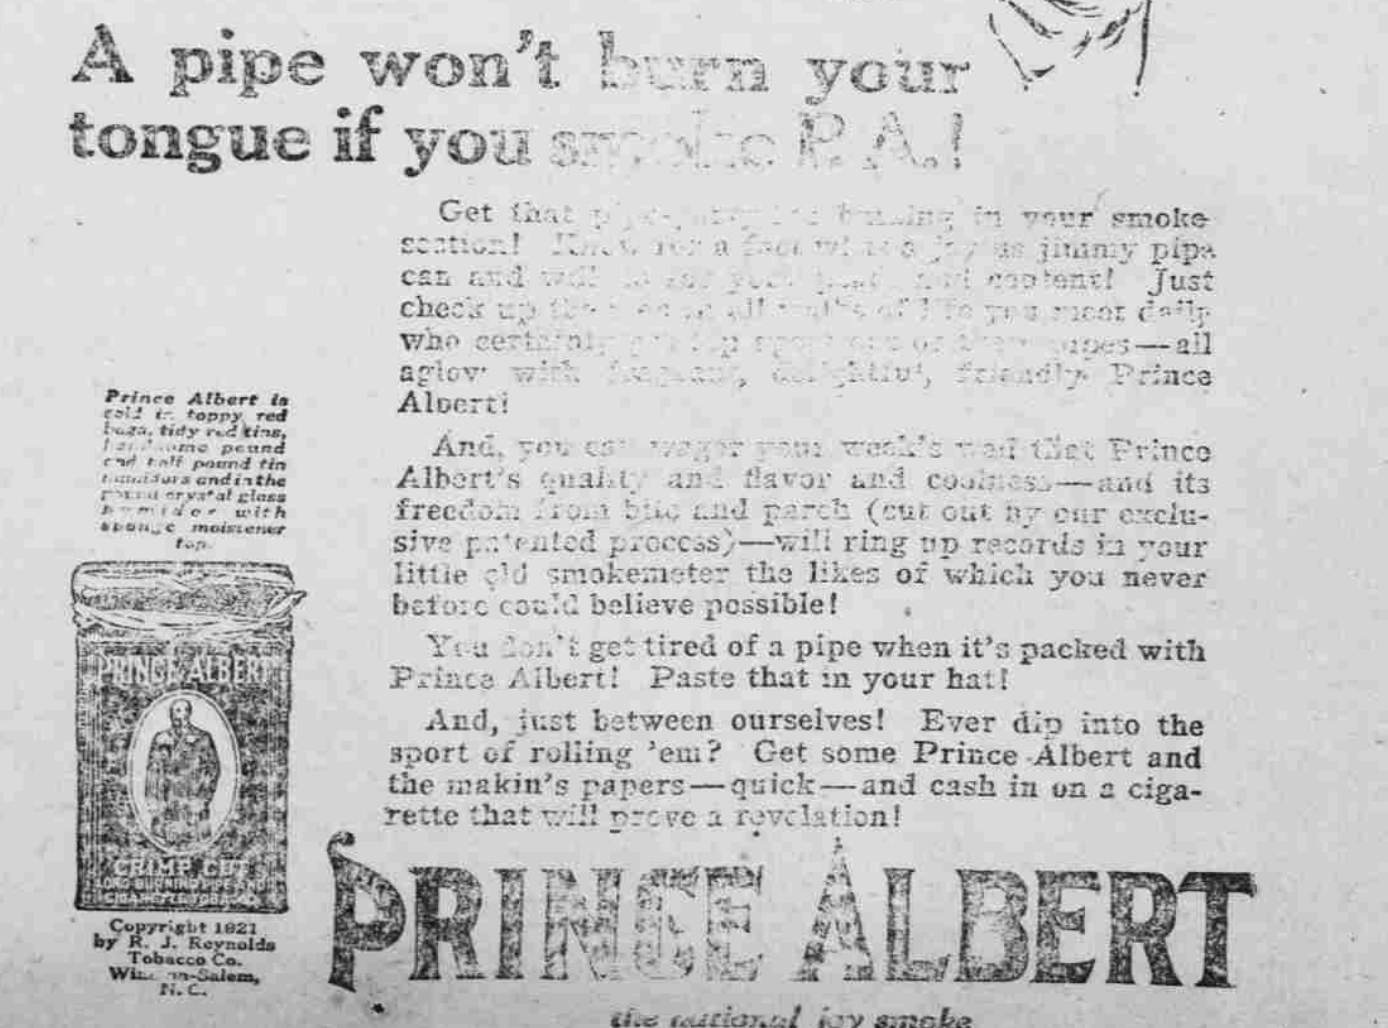 A pipe won't burn your
tongue if you smoke P. A.!
Get that in your smoke-
section! for a fact what a joy us jimmy pipe
can and will content! Just
check up the all of life you meet daily
who certainly get sport out of their pipes—all
aglow with fragrant, delightful, friendly Prince
Albert!
And, you can wager your week's wad that Prince
Albert's quality and flavor and coolness—and its
freedom from bite and parch (cut out by our exclu-
sive patented process)—will ring up records in your
little old smokemeter the likes of which you never
before could believe possible!
You don't get tired of a pipe when it's packed with
Prince Albert! Paste that in your hat!
And, just between ourselves! Ever dip into the
sport of rolling 'em? Get some Prince Albert and
the makin's papers—quick—and cash in on a ciga-
rette that will prove a revelation!
Prince Albert is
sold in toppy red
bags, tidy red tins,
handsome pound
and half pound tin
humidors and in the
pound crystal glass
humidor with
sponge moistener
top.
PRINCE ALBERT
CRIMP CUT
LONG BURNING PIPE AND
CIGARETTE TOBACCO
Copyright 1921
by R. J. Reynolds
Tobacco Co.
Winston-Salem,
N. C.
PRINCE ALBERT
the national joy smoke